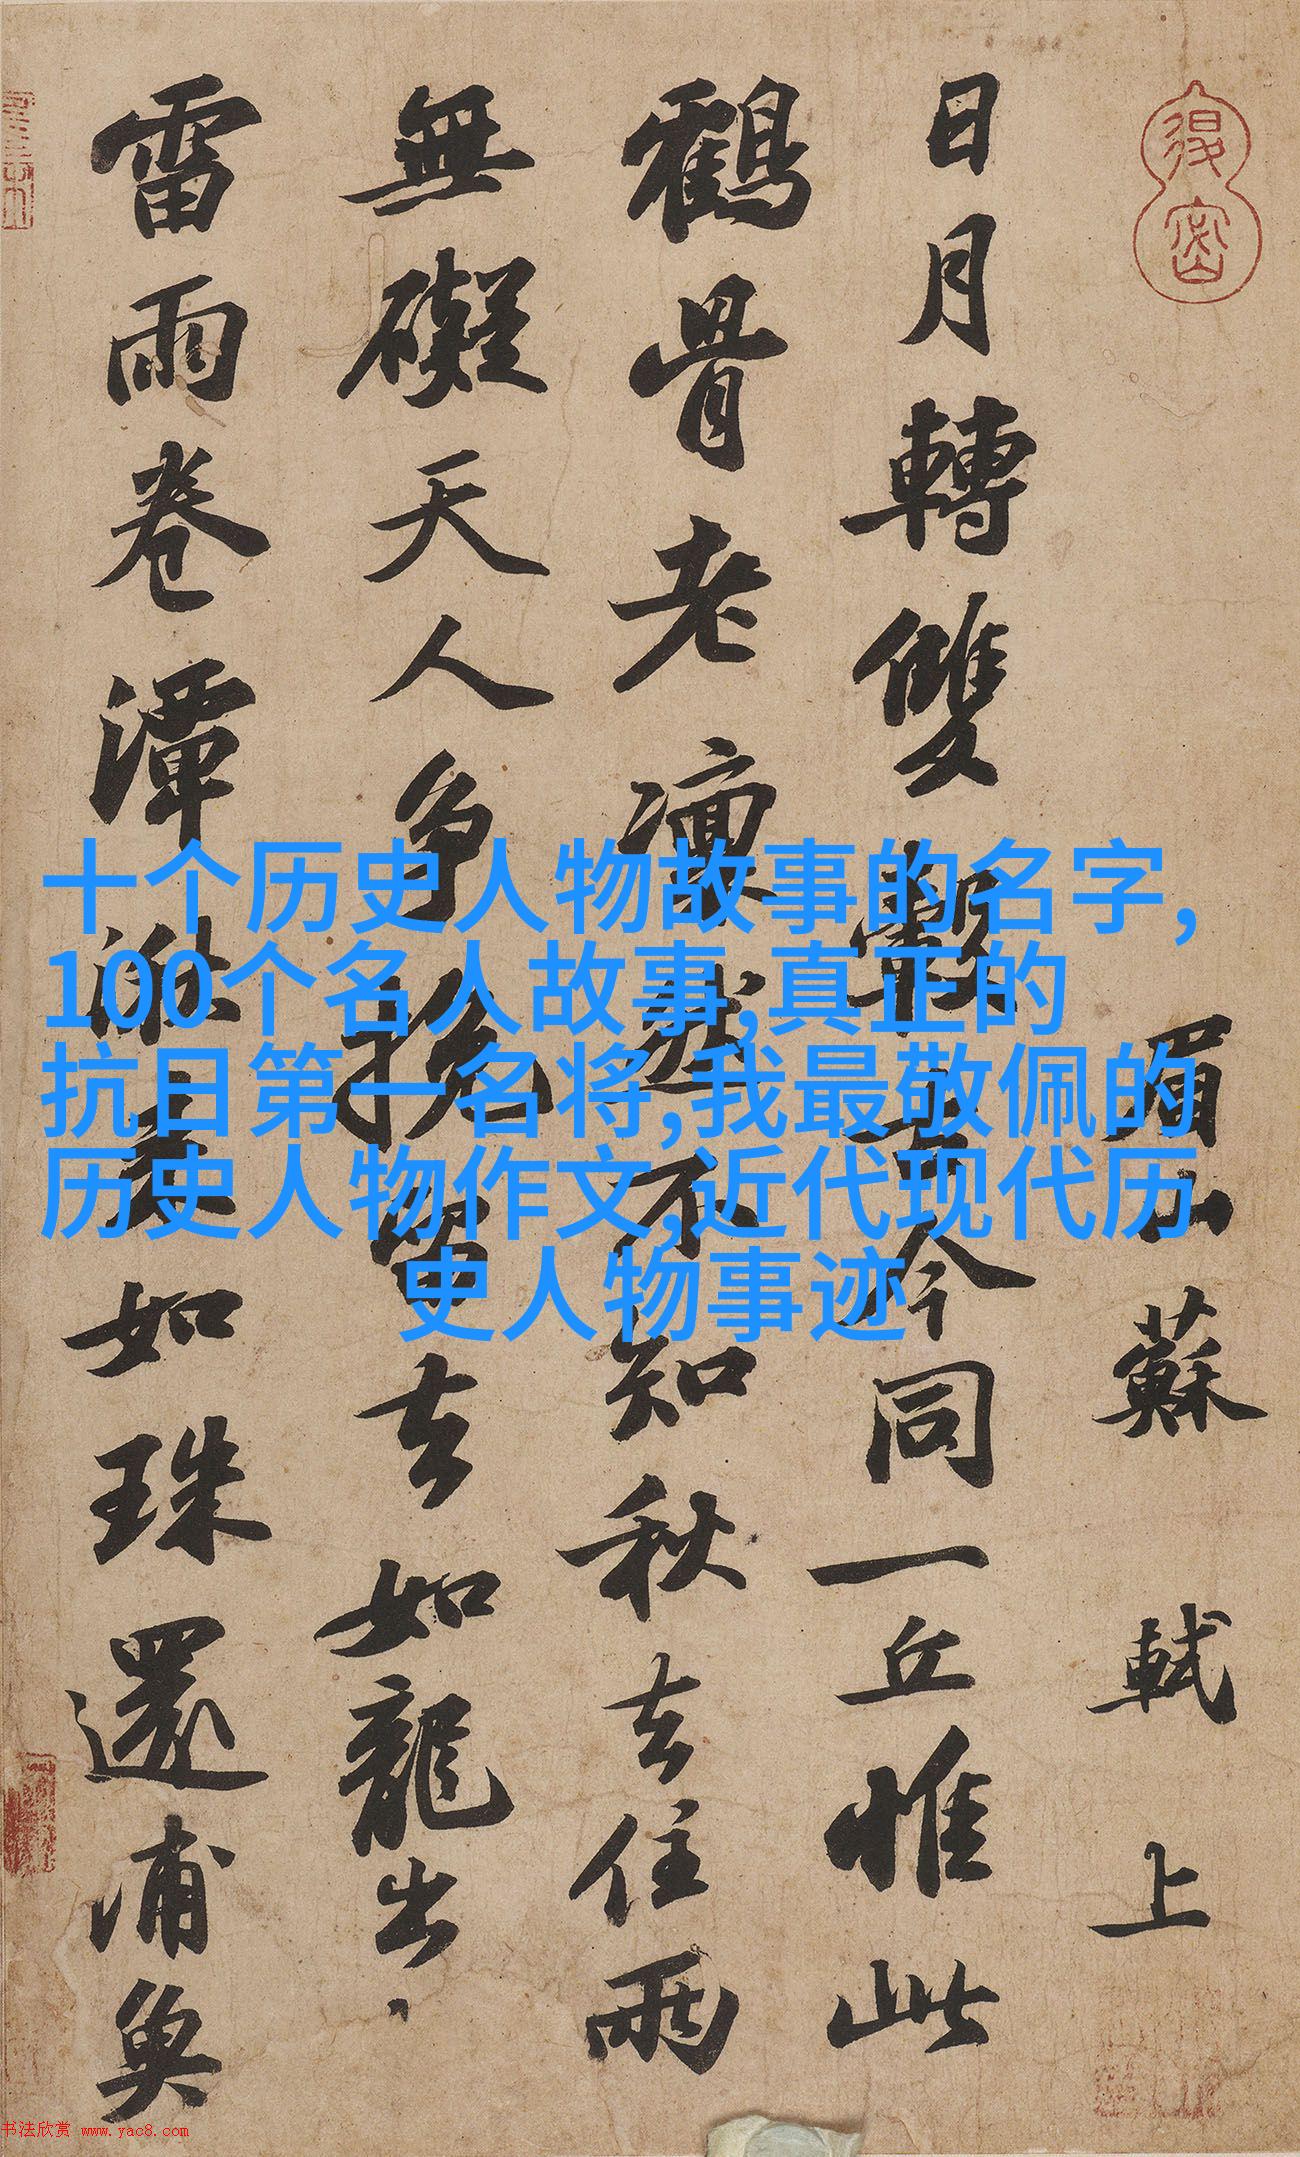 眉山蘇軾上
日月轉雙轂古今同一丘惟此
鶴骨老凜然不知秋去住兩
無礙天人爭挽留去如龍出
雷雨卷潭湫來如珠還浦魚
十个历史人物故事的名字,
100个名人故事,真正的
抗日第一名将,我最敬佩的
历史人物作文,近代现代历
史人物事迹
书法欣赏 www.yac8.com